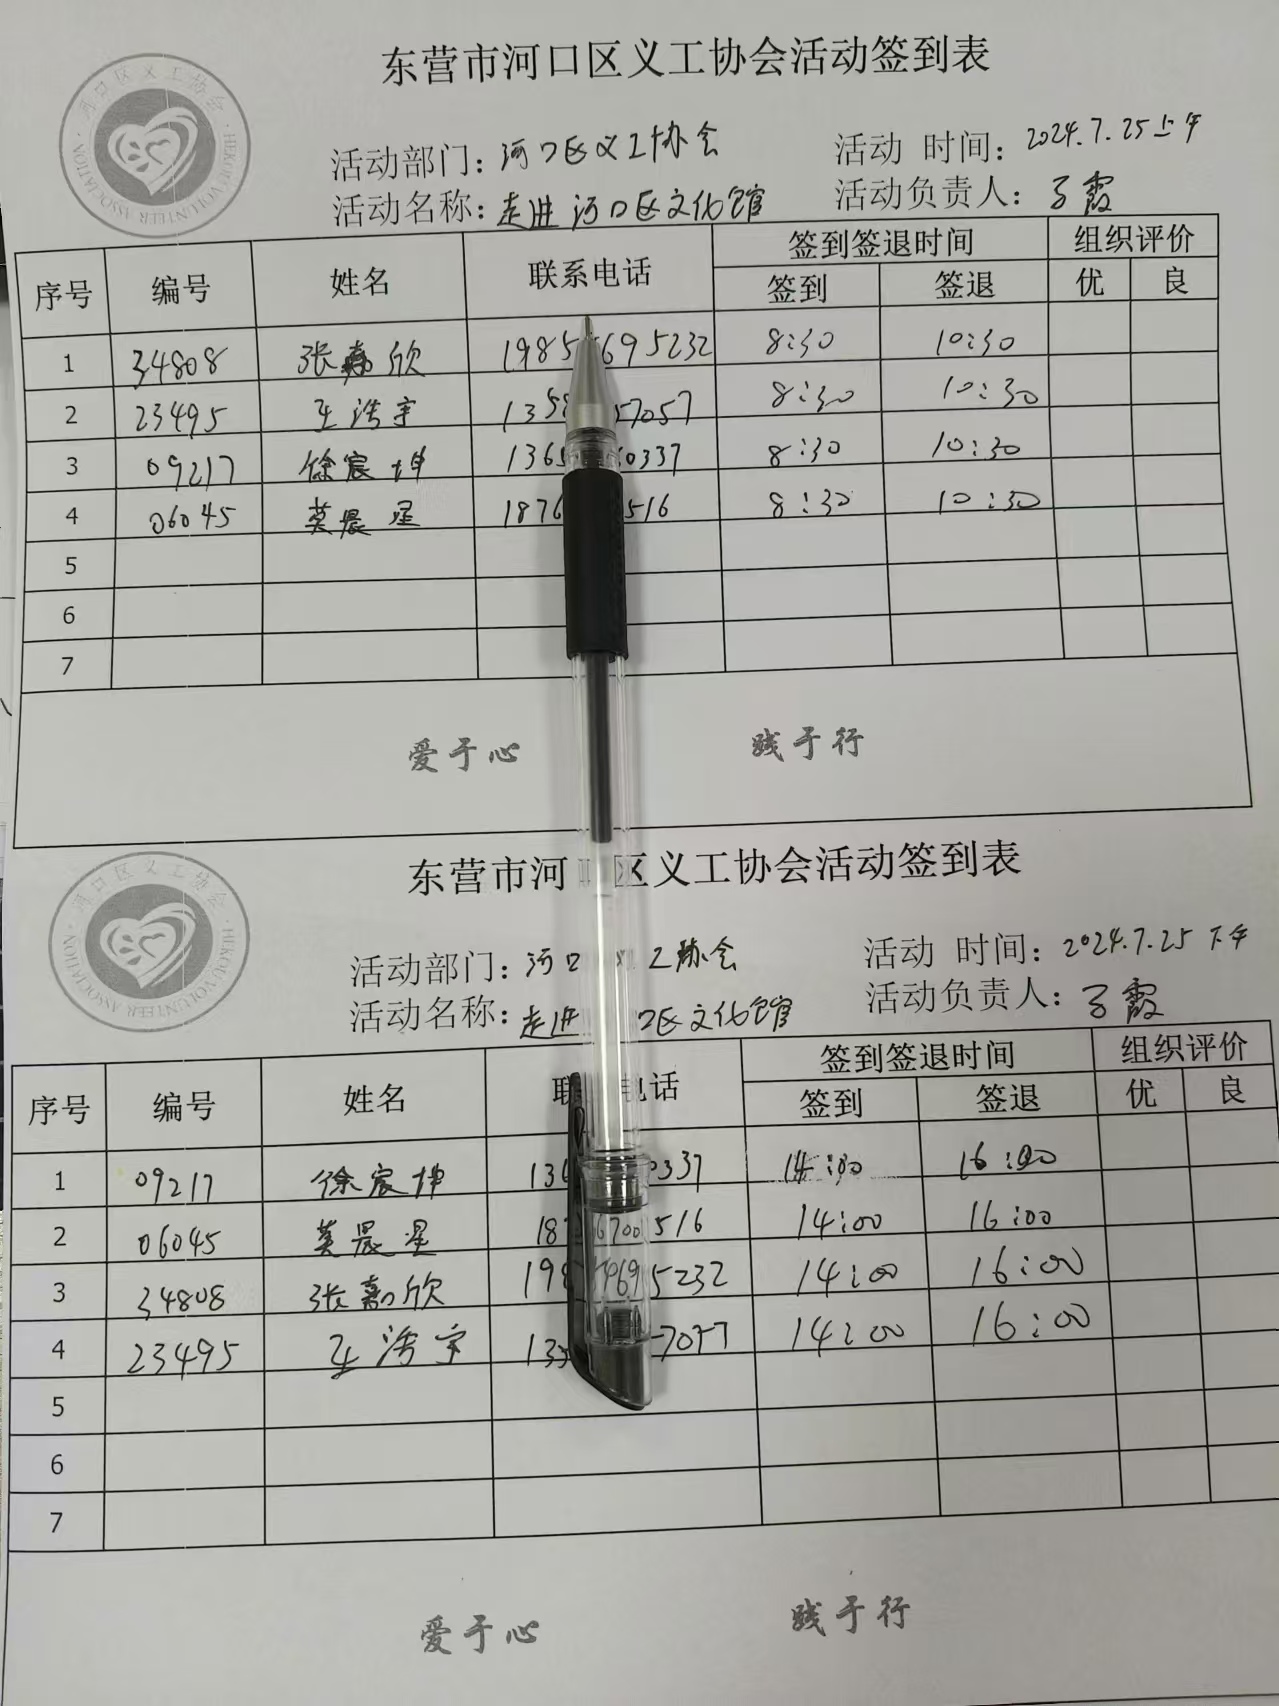 东营市河口区义工协会活动签到表
河口区义工协会 HEKOU VOLUNTEER ASSOCIATION
活动部门：河口区义工协会 活动 时间：2024.7.25上午
活动名称：走进河口区文化馆 活动负责人：霞
序号 编号 姓名 联系电话 签到签退时间 组织评价
签到 签退 优 良
1 34808 张嘉欣 1985 695232 8:30 10:30
2 23495 王浩宇 135 57057 8:30 10:30
3 09217 徐宸坤 136 0337 8:30 10:30
4 06045 莫晨星 1876 516 8:30 10:30
5
6
7
爱于心 践于行
东营市河 区义工协会活动签到表
河口区义工协会 HEKOU VOLUNTEER ASSOCIATION
活动部门：河口 工协会 活动 时间：2024.7.25下午
活动名称：走进 口区文化馆 活动负责人：霞
序号 编号 姓名 联 电话 签到签退时间 组织评价
签到 签退 优 良
1 09217 徐宸坤 136 0337 14:00 16:00
2 06045 莫晨星 18 6700516 14:00 16:00
3 34808 张嘉欣 198 695232 14:00 16:00
4 23495 王浩宇 135 7057 14:00 16:00
5
6
7
爱于心 践于行